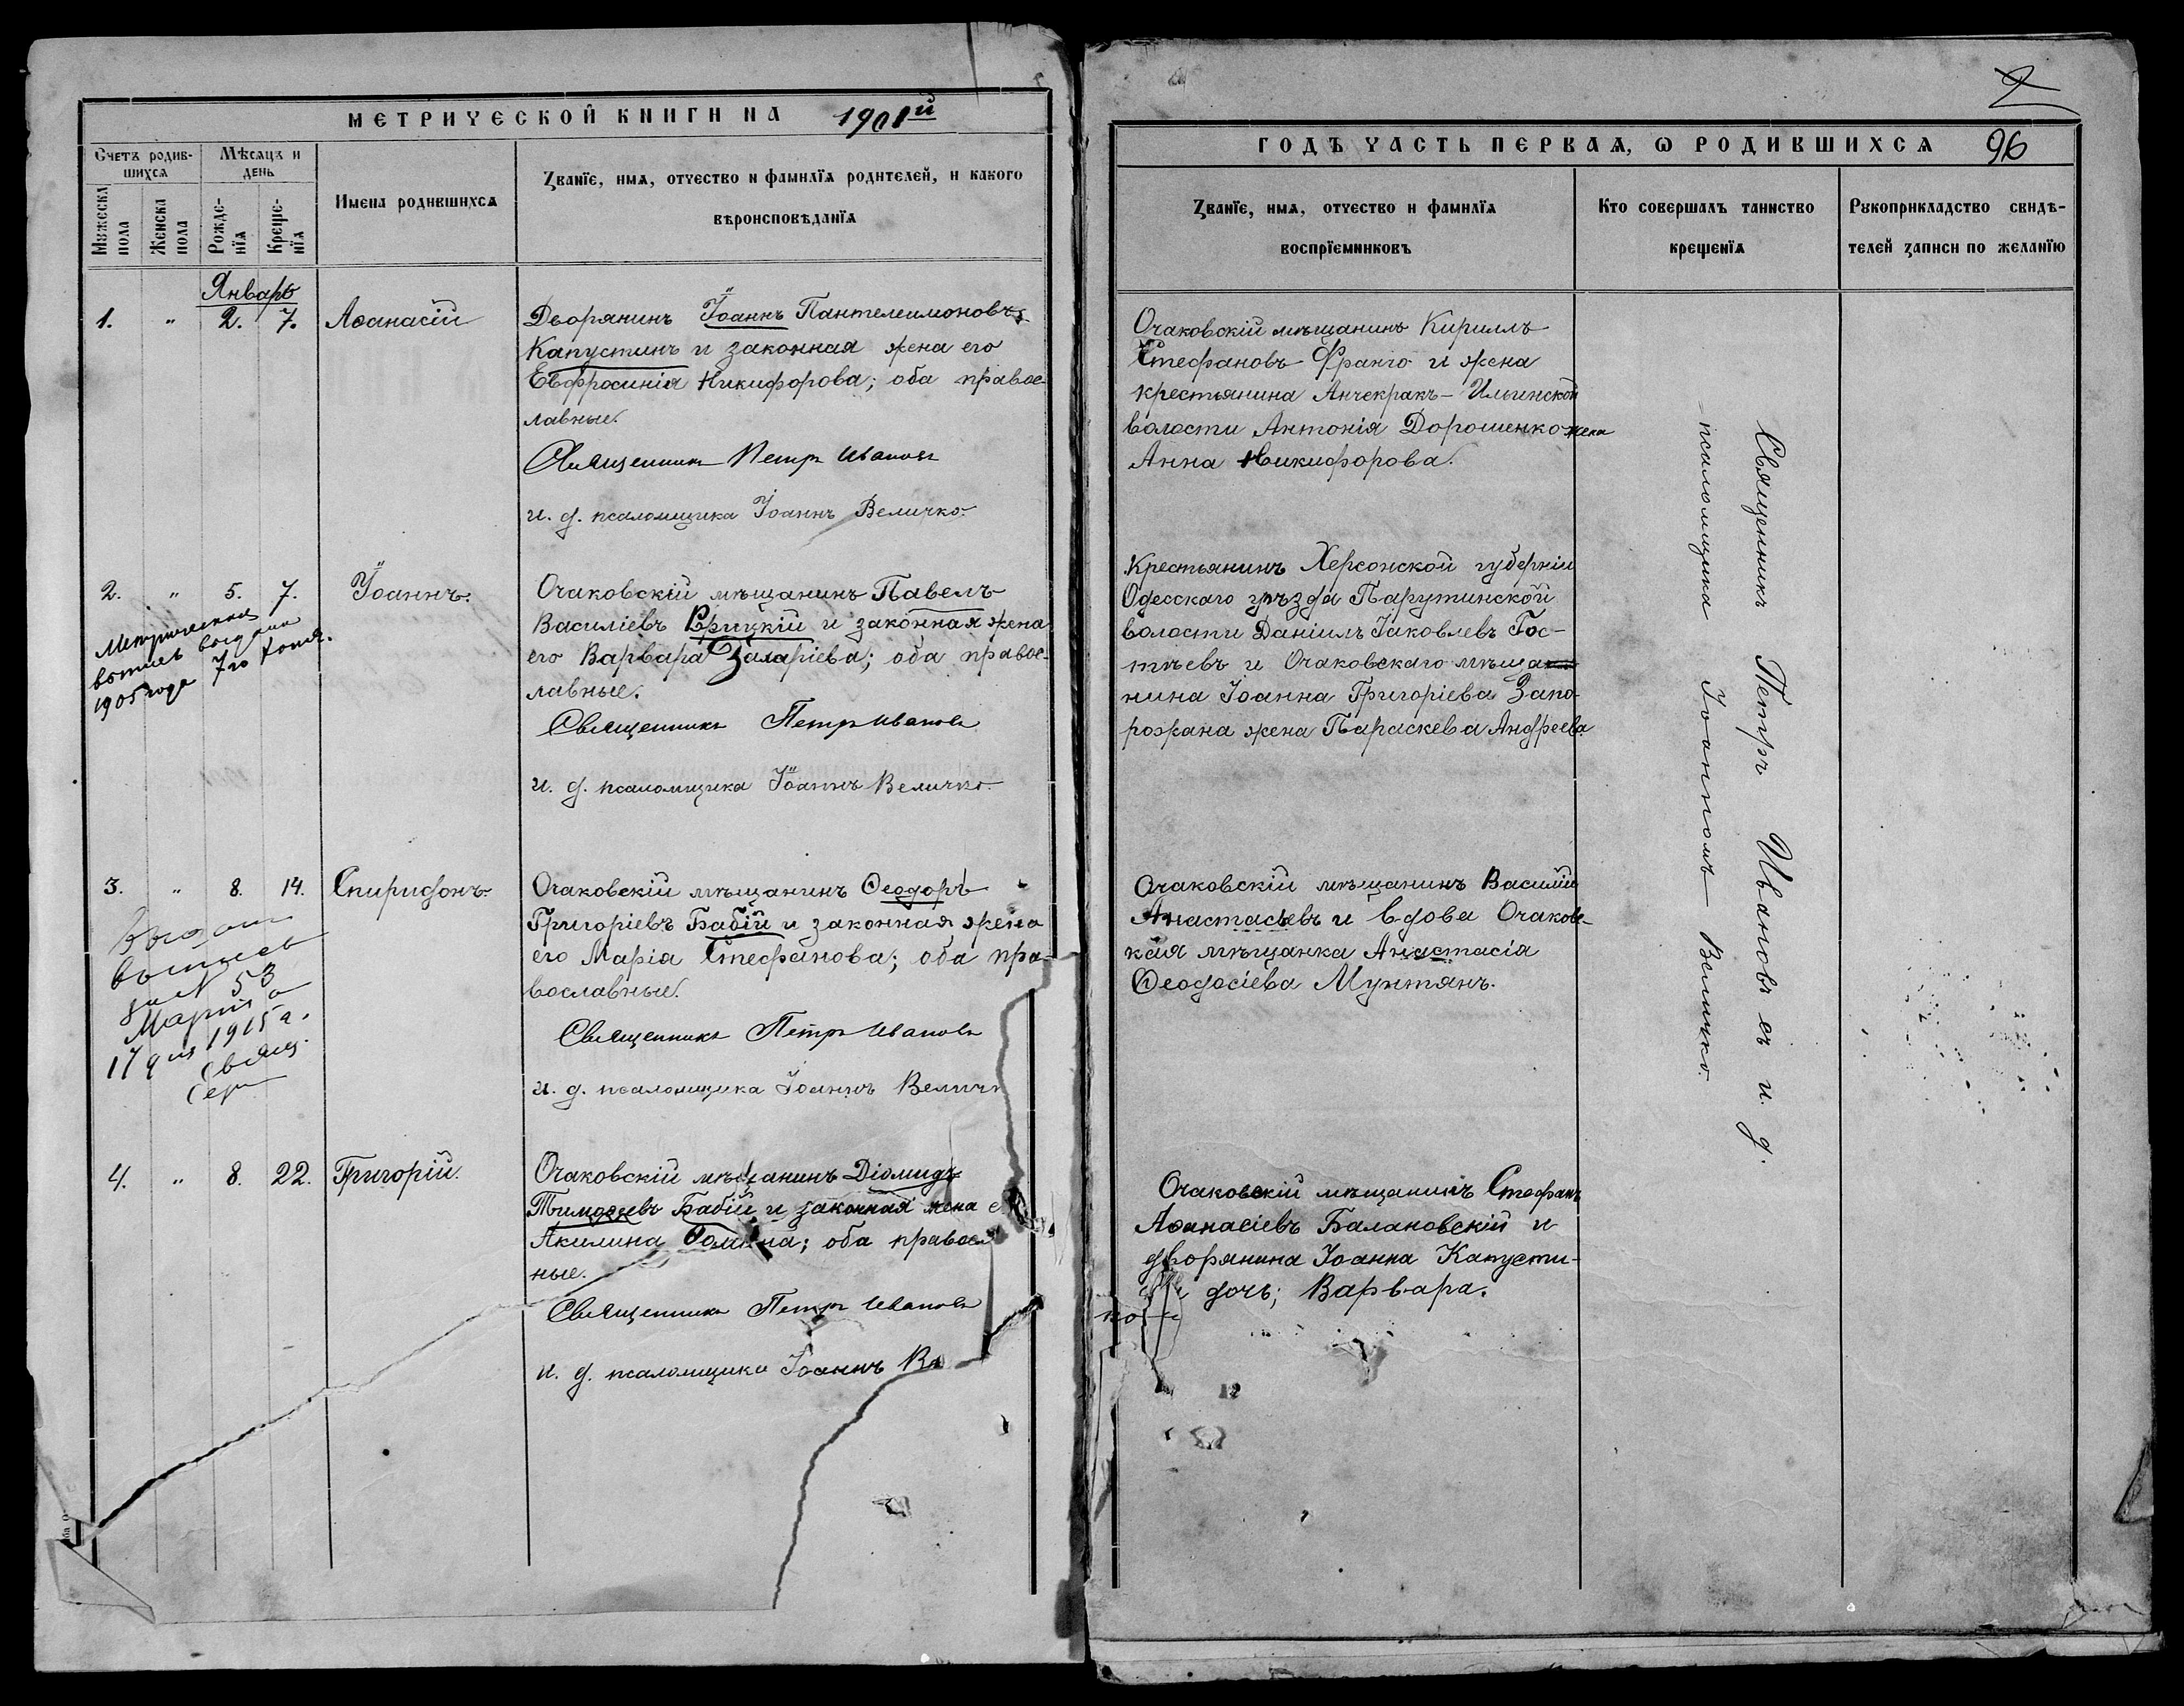 МЕТРИЧЕСКОЙ КНИГИ НА 1901й
Счетъ родив-
шихся
Мѣсяцъ и
день
Мужеска
пола
Женска
пола
Рожде-
нїя
Креще-
нїя
Имена родившихся
Званїе, имя, отчество и фамилїя родителей, и какого
вѣроисповѣданїя
Январь
1. " 2. 7. Аѳанасій
Дворянинъ Іоаннъ Пантелеимоновъ
Капустинъ и законная жена его
Евфросинія Никифорова; оба правос-
лавные.
Священникъ Петръ Ивановъ
и. д. псаломщика Іоаннъ Величко.
2. " 5. 7. Іоаннъ.
Метрическая
выпись выдана
1905 года 7го
Очаковскій мѣщанинъ Павелъ
Василіевъ и законная жена
его Варвара Захаріева; оба правос-
лавные.
Священникъ Петръ Ивановъ
и. д. псаломщика Іоаннъ Величко.
3. " 8. 14. Спиридонъ.
выпись
53
Марта
17 дня 1915 г.
Свящ.
Очаковскій мѣщанинъ Ѳеодоръ
Григоріевъ Бабій и законная жена
его Марія Стефанова; оба пра-
вославные.
Священникъ Петръ Ивановъ
и. д. псаломщика Іоаннъ Велич
4. " 8. 22. Григорій.
Очаковскій мѣщанинъ Діомидъ
Тимоѳеевъ Бабій и законная жена
Акилина; оба правосл
ные.
Священникъ Петръ Ивановъ
и. д. псаломщика Іоаннъ Ве
2
ГОДЪ ЧАСТЬ ПЕРВАЯ, Ѡ РОДИВШИХСЯ 96
Званїе, имя, отчество и фамилїя
воспрїемниковъ
Кто совершалъ таинство
крещенїя
Рукоприкладство свидѣ-
телей записи по желанїю
Очаковскій мѣщанинъ Кириллъ
Стефановъ Франго и жена
крестьянина Анчекракъ-Ильинской
волости Антонія Дорошенко жена
Анна Никифорова.
Крестьянинъ Херсонской губерніи
Одесскаго уѣзда Парутинской
волости Даніилъ Іаковлевъ Гос-
тѣевъ и Очаковскаго мѣща
нина Іоанна Григоріева Запо-
рожана жена Параскева Андреева
Очаковскій мѣщанинъ Василій
Анастасьевъ и вдова Очаковс-
кая мѣщанка Анастасія
Ѳеодосіева Мунтянъ.
Очаковскій мѣщанинъ Стефанъ
Аѳанасіевъ Балановскій и
дворянина Іоанна Капусти-
дочь; Варвара.
Священникъ Петръ Ивановъ съ и. д.
псаломщика Іоанномъ Величко.